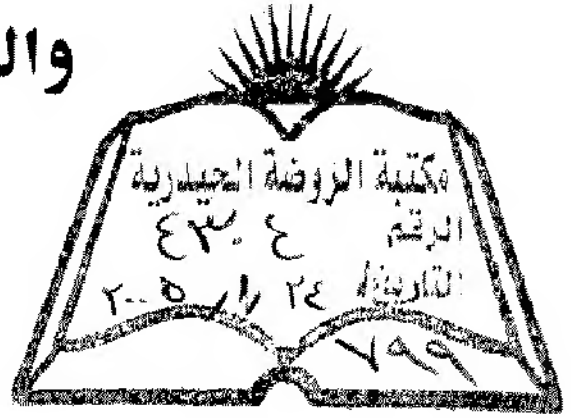 وال
مكتبة الروضة الحيدرية
الرقم ٤٣٠٤
التاريخ ٢٤ / / ٢٠٠٥
٧٩٩